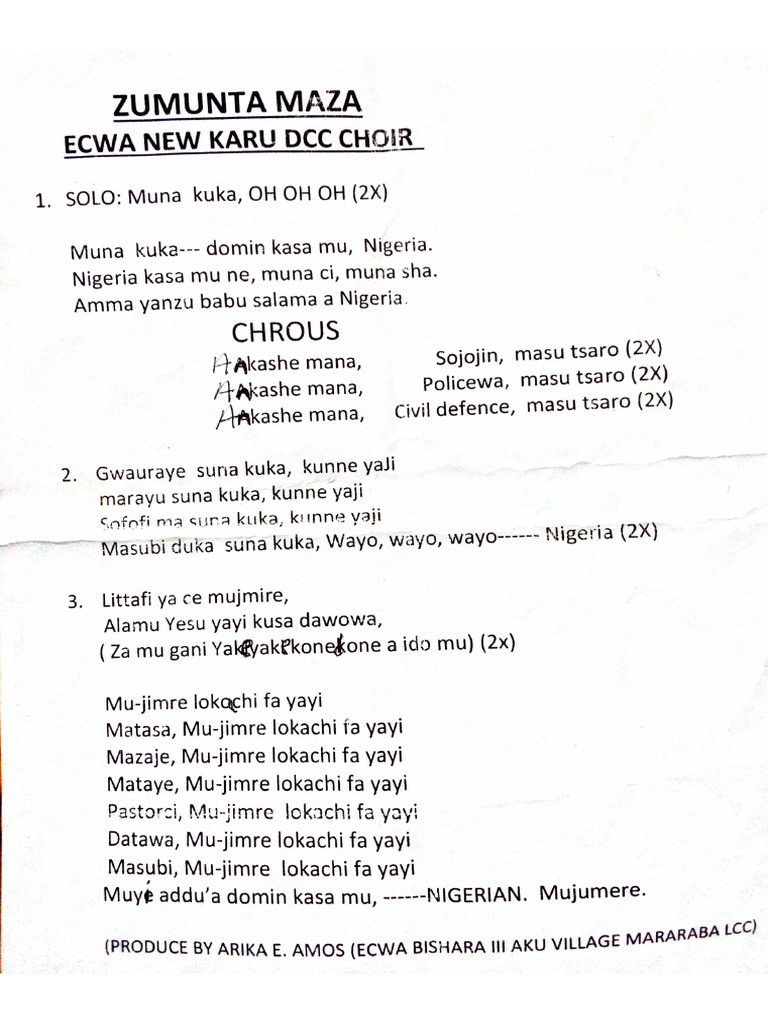 ZUMUNTA MAZA
ECWA NEW KARU DCC CHOIR
1. SOLO: Muna kuka, OH OH OH (2X)
Muna kuka--- domin kasa mu, Nigeria.
Nigeria kasa mu ne, muna ci, muna sha.
Amma yanzu babu salama a Nigeria.
CHROUS
HAkashe mana, Sojojin, masu tsaro (2X)
HAkashe mana, Policewa, masu tsaro (2X)
HAkashe mana, Civil defence, masu tsaro (2X)
2. Gwauraye suna kuka, kunne yaJi
marayu suna kuka, kunne yaji
Sofofi ma suna kuka, kunne yaji
Masubi duka suna kuka, Wayo, wayo, wayo------ Nigeria (2X)
3. Littafi ya ce mujmire,
Alamu Yesu yayi kusa dawowa,
( Za mu gani a ido mu) (2x)
Mu-jimre lokachi fa yayi
Matasa, Mu-jimre lokachi fa yayi
Mazaje, Mu-jimre lokachi fa yayi
Mataye, Mu-jimre lokachi fa yayi
Pastorci, Mu-jimre lokachi fa yayi
Datawa, Mu-jimre lokachi fa yayi
Masubi, Mu-jimre lokachi fa yayi
Muyé addu'a domin kasa mu, ------NIGERIAN. Mujumere.
(PRODUCE BY ARIKA E. AMOS (ECWA BISHARA III AKU VILLAGE MARARABA LCC)